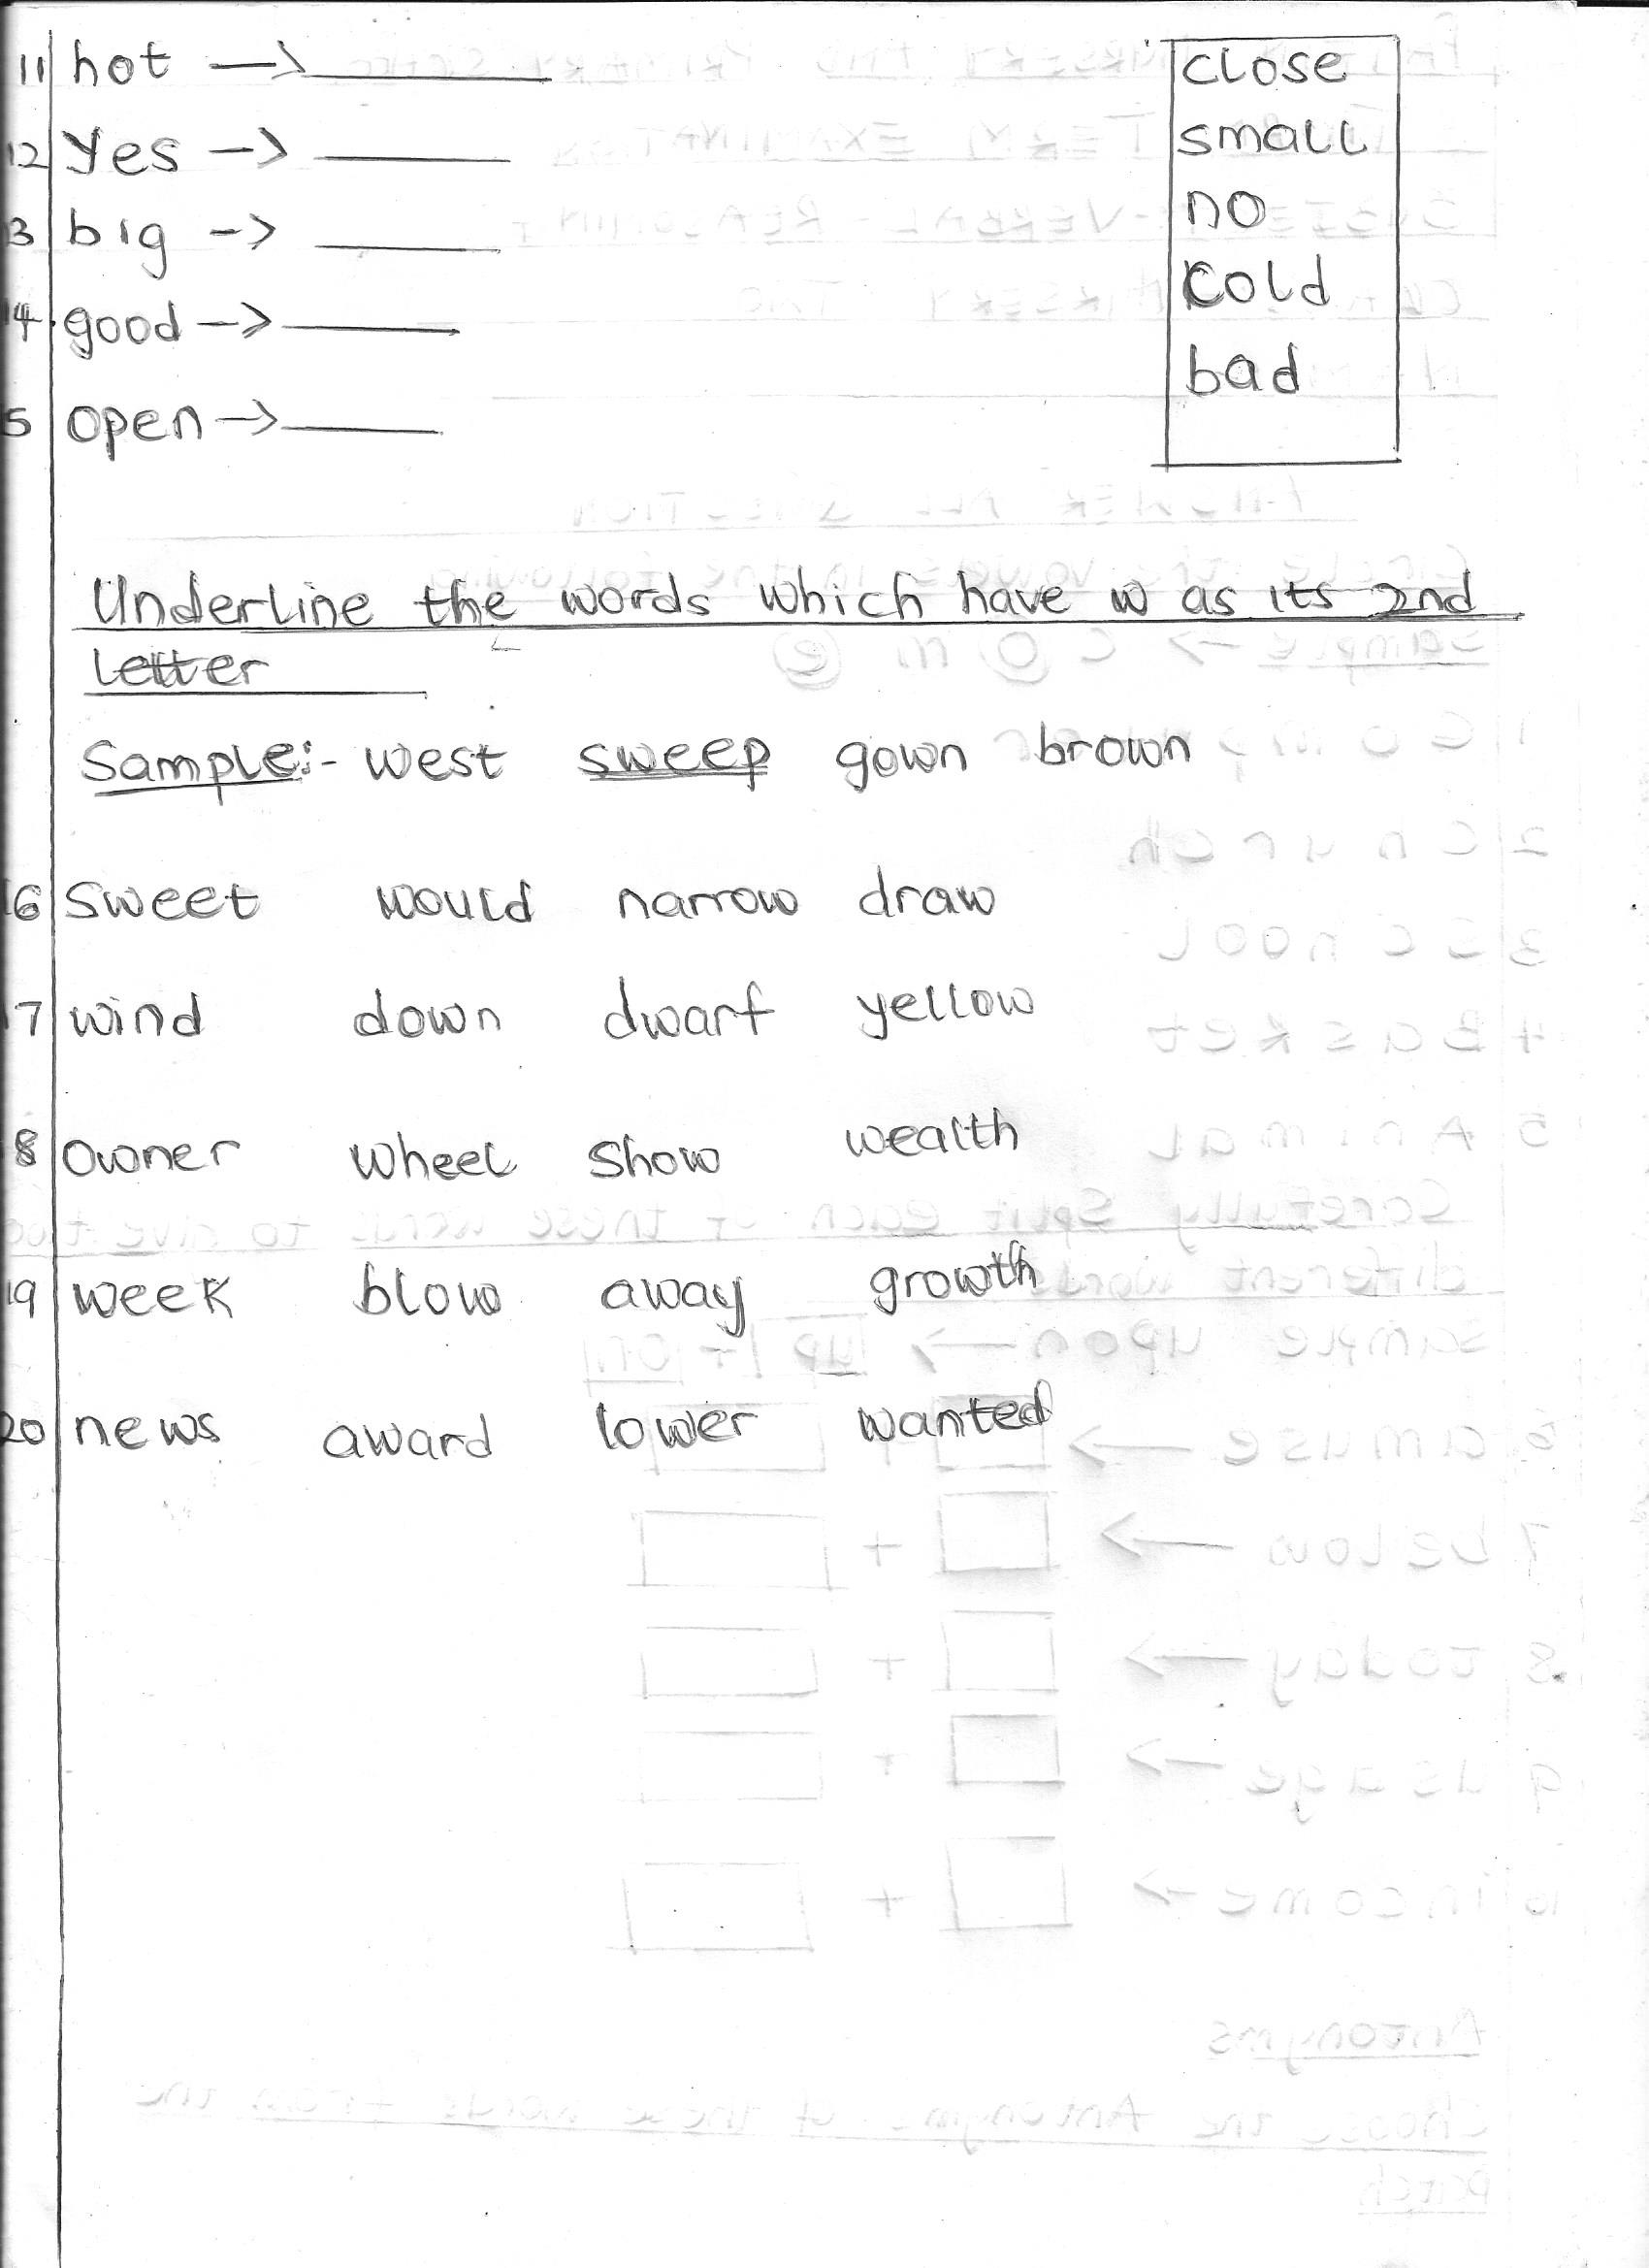 11 hot → ______
12 Yes → ______
13 big → ______
14. good → ______
15 open → ______
close
small
no
cold
bad
Underline the words which have w as its 2nd
letter
Sample:- west sweep gown brown
16 sweet would narrow draw
17 wind down dwarf yellow
18 owner wheel show wealth
19 week blow away growth
20 news award lower wanted